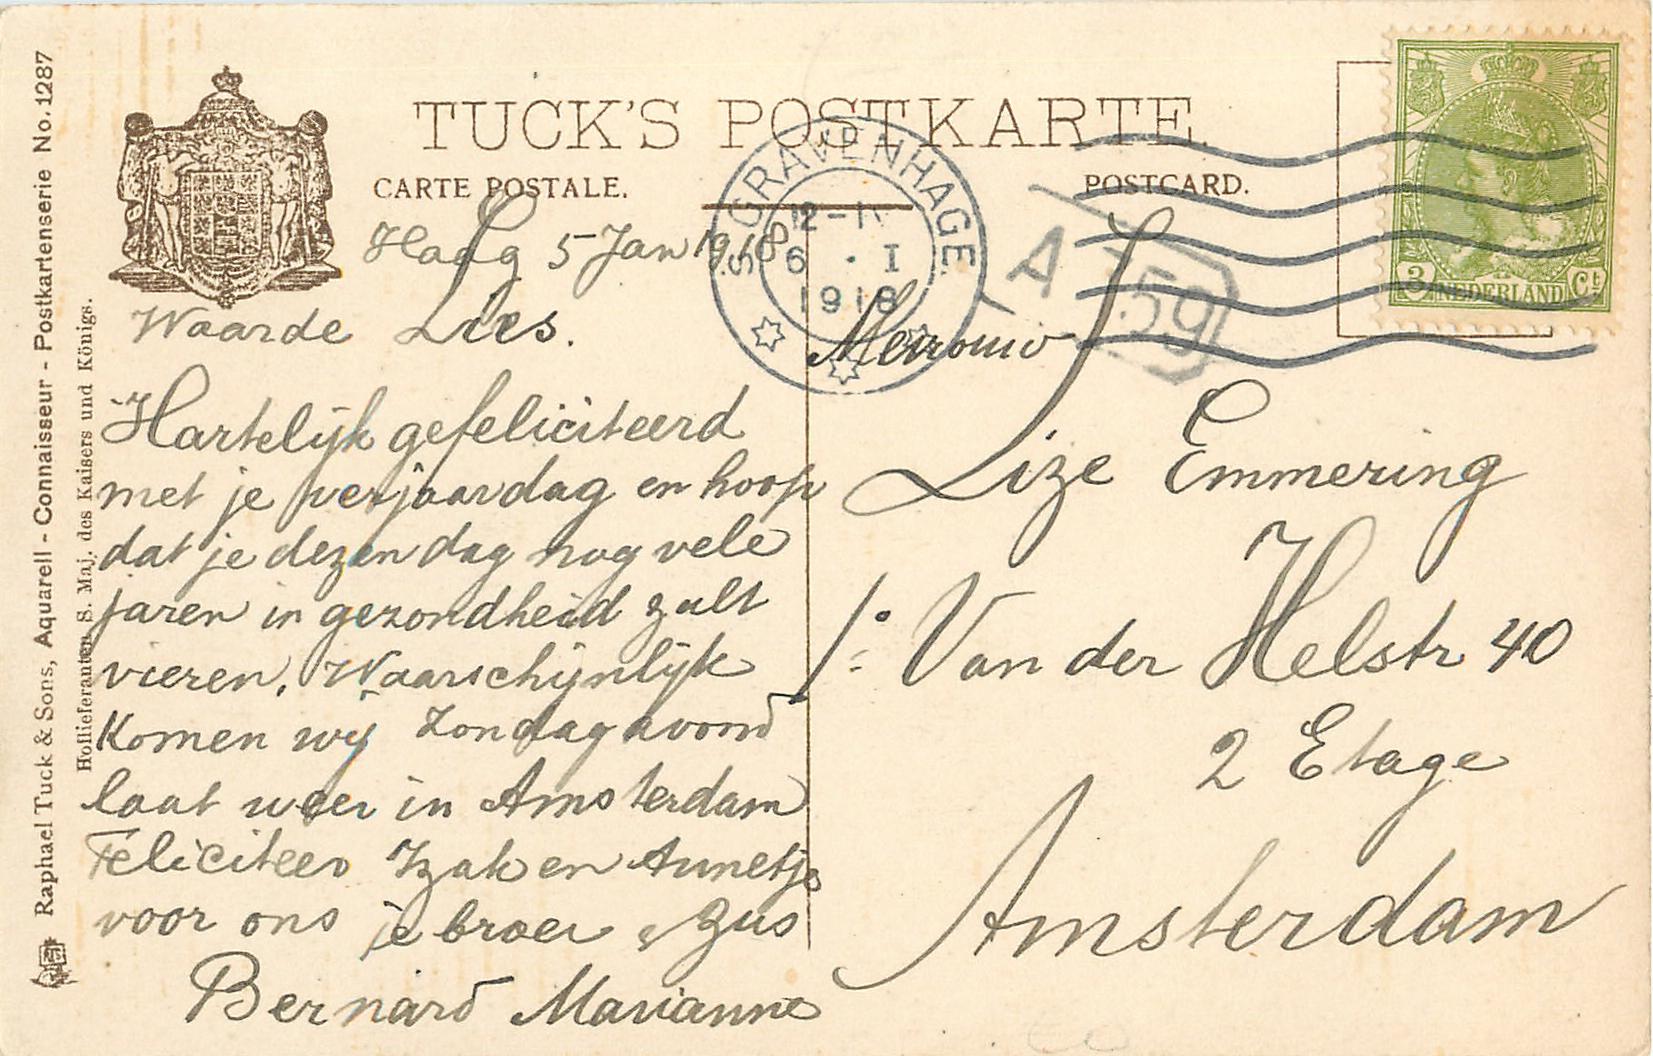 TUCK'S POSTKARTE
CARTE POSTALE. POSTCARD.
'S GRAVENHAGE
12-1
6 . I
1918
A
59
3 NEDERLAND Ct
Haag 5 Jan 1918
Waarde Lies.
Hartelijk gefeliciteerd
met je verjaardag en hoop
dat je dezen dag nog vele
jaren in gezondheid zult
vieren. Waarschijnlijk
Komen wij Zondagavond
laat weer in Amsterdam
Feliciteer Izak en Annetje
voor ons je broer & Zus
Bernard Marianne
Mevrouw
Lize Emmering
1e Van der Helstr 40
2 Etage
Amsterdam
Raphael Tuck & Sons, Aquarell - Connaisseur - Postkartenserie No. 1287
Hoflieferanten S. Maj. des Kaisers und Königs.